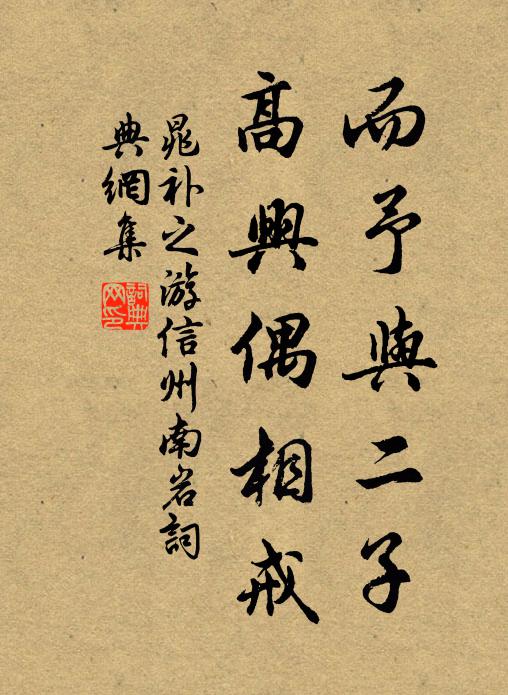 而予與二子
高興偶相戒
晁补之游信州南岩詞
典網集
詞典
网印